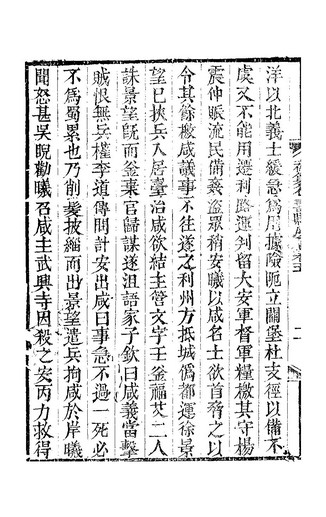 洋以北義士緩急爲用據險阨立關堡杜支徑以備不
虞又不能用遷利路運判留大安軍督軍糧檄其守楊
震仲賑流民備姦盜眾稍安曦以咸名士欲首脅之以
令其餘檄咸議事不往遂之利州方抵城僞都運徐景
望已挾兵入居臺治咸欲結主管文字王釜福艾二人
誅景望旣而釜棄官歸謀遂沮語家子欽曰咸義當擊
賊恨無兵權李道傳問計安出咸曰事急不過一死必
不爲蜀累也乃削髮披緇而出景望遣兵拘咸於岸曦
聞怒甚吳晛勸曦召咸主武興寺因殺之安丙力救得
二